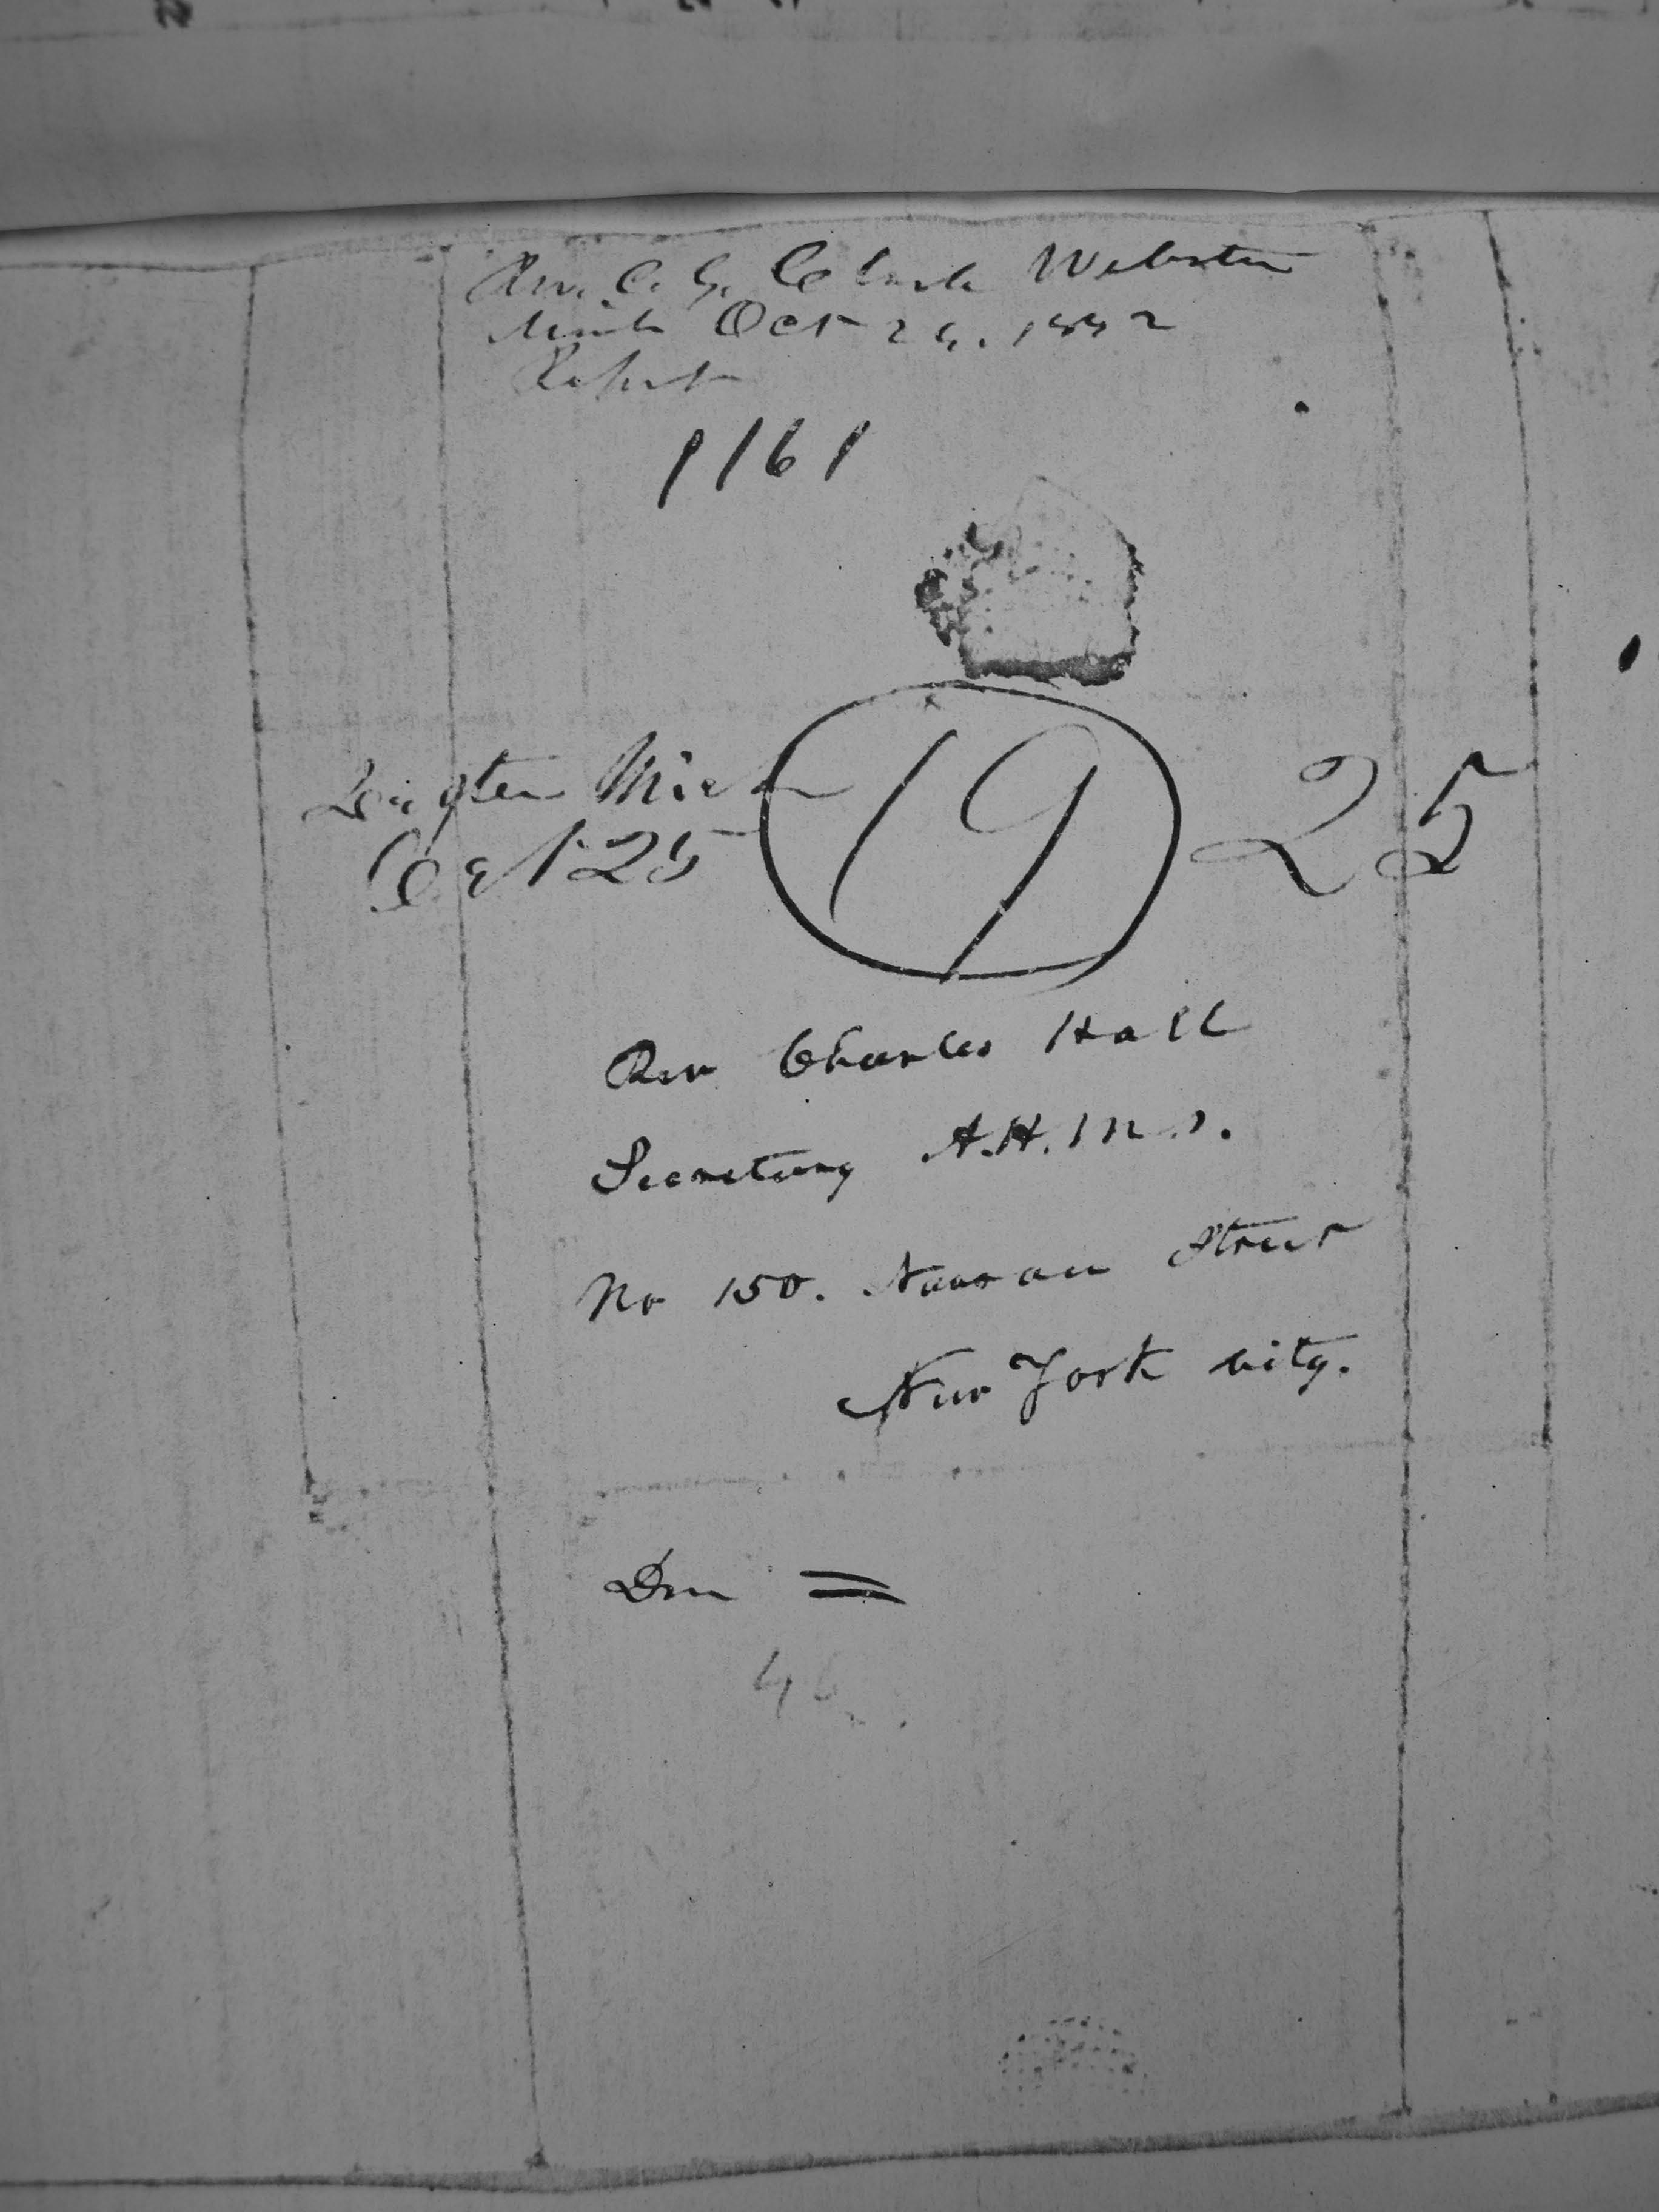 Rev. C. G. Clark Webster
Mich Oct 24. 1842
Report
1161
19
25
Mich
Oct 25
Rev Charles Hall
Secretary A.H.M.S.
No 150. Nassau Street
New York city.
46